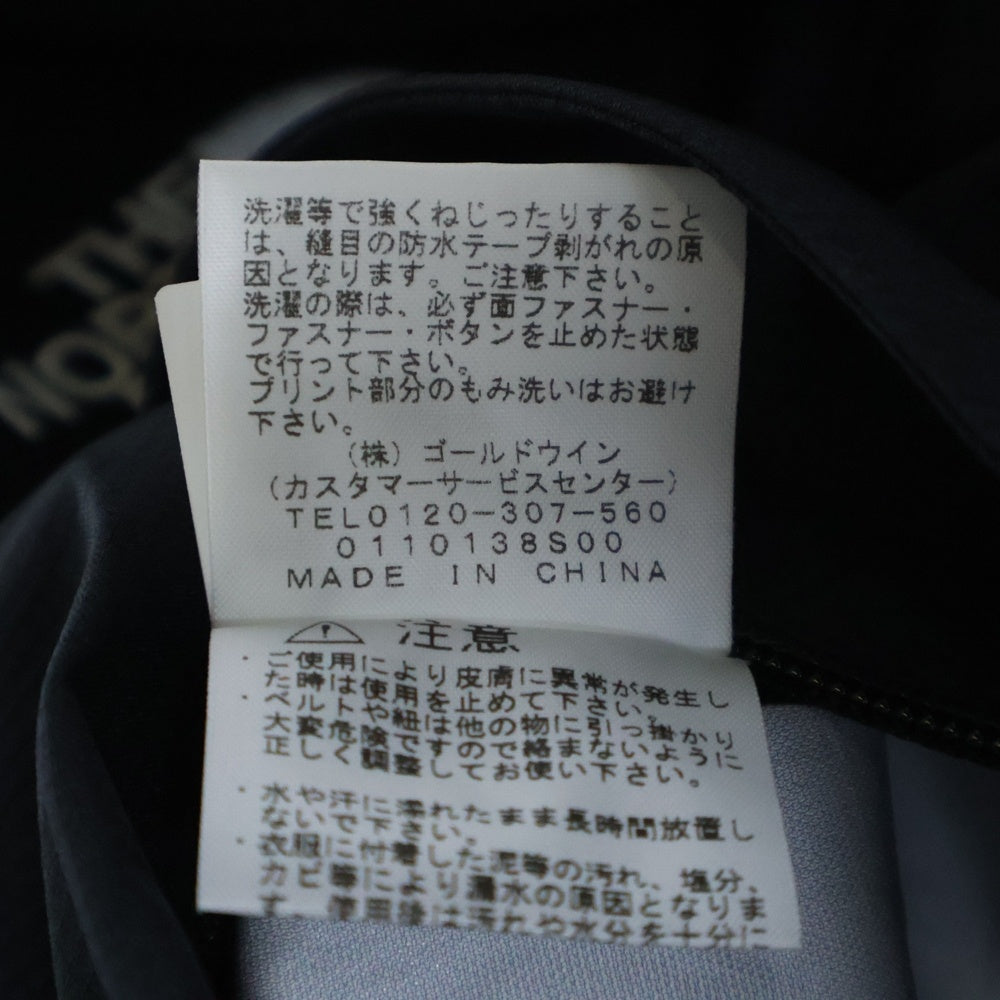 THE
NOR
洗濯等で強くねじったりすること
は、縫目の防水テープ剥がれの原
因となります。ご注意下さい。
洗濯の際は、必ず面ファスナー・
ファスナー・ボタンを止めた状態
で行って下さい。
プリント部分のもみ洗いはお避け
下さい。
(株)ゴールドウイン
(カスタマーサービスセンター)
TEL0120-307-560
0110138S00
MADE IN CHINA
注意
・ご使用により皮膚に異常が発生し
た時は使用を止めて下さい。
・ベルトや紐は他の物に引っ掛かり
大変危険ですので絡まないように
正しく調整してお使い下さい。
・水や汗に濡れたまま長時間放置し
ないで下さい。
・衣服に付着した泥等の汚れ、塩分、
カビ等により漏水の原因となりま
す。使用後は汚れや水分を十分に